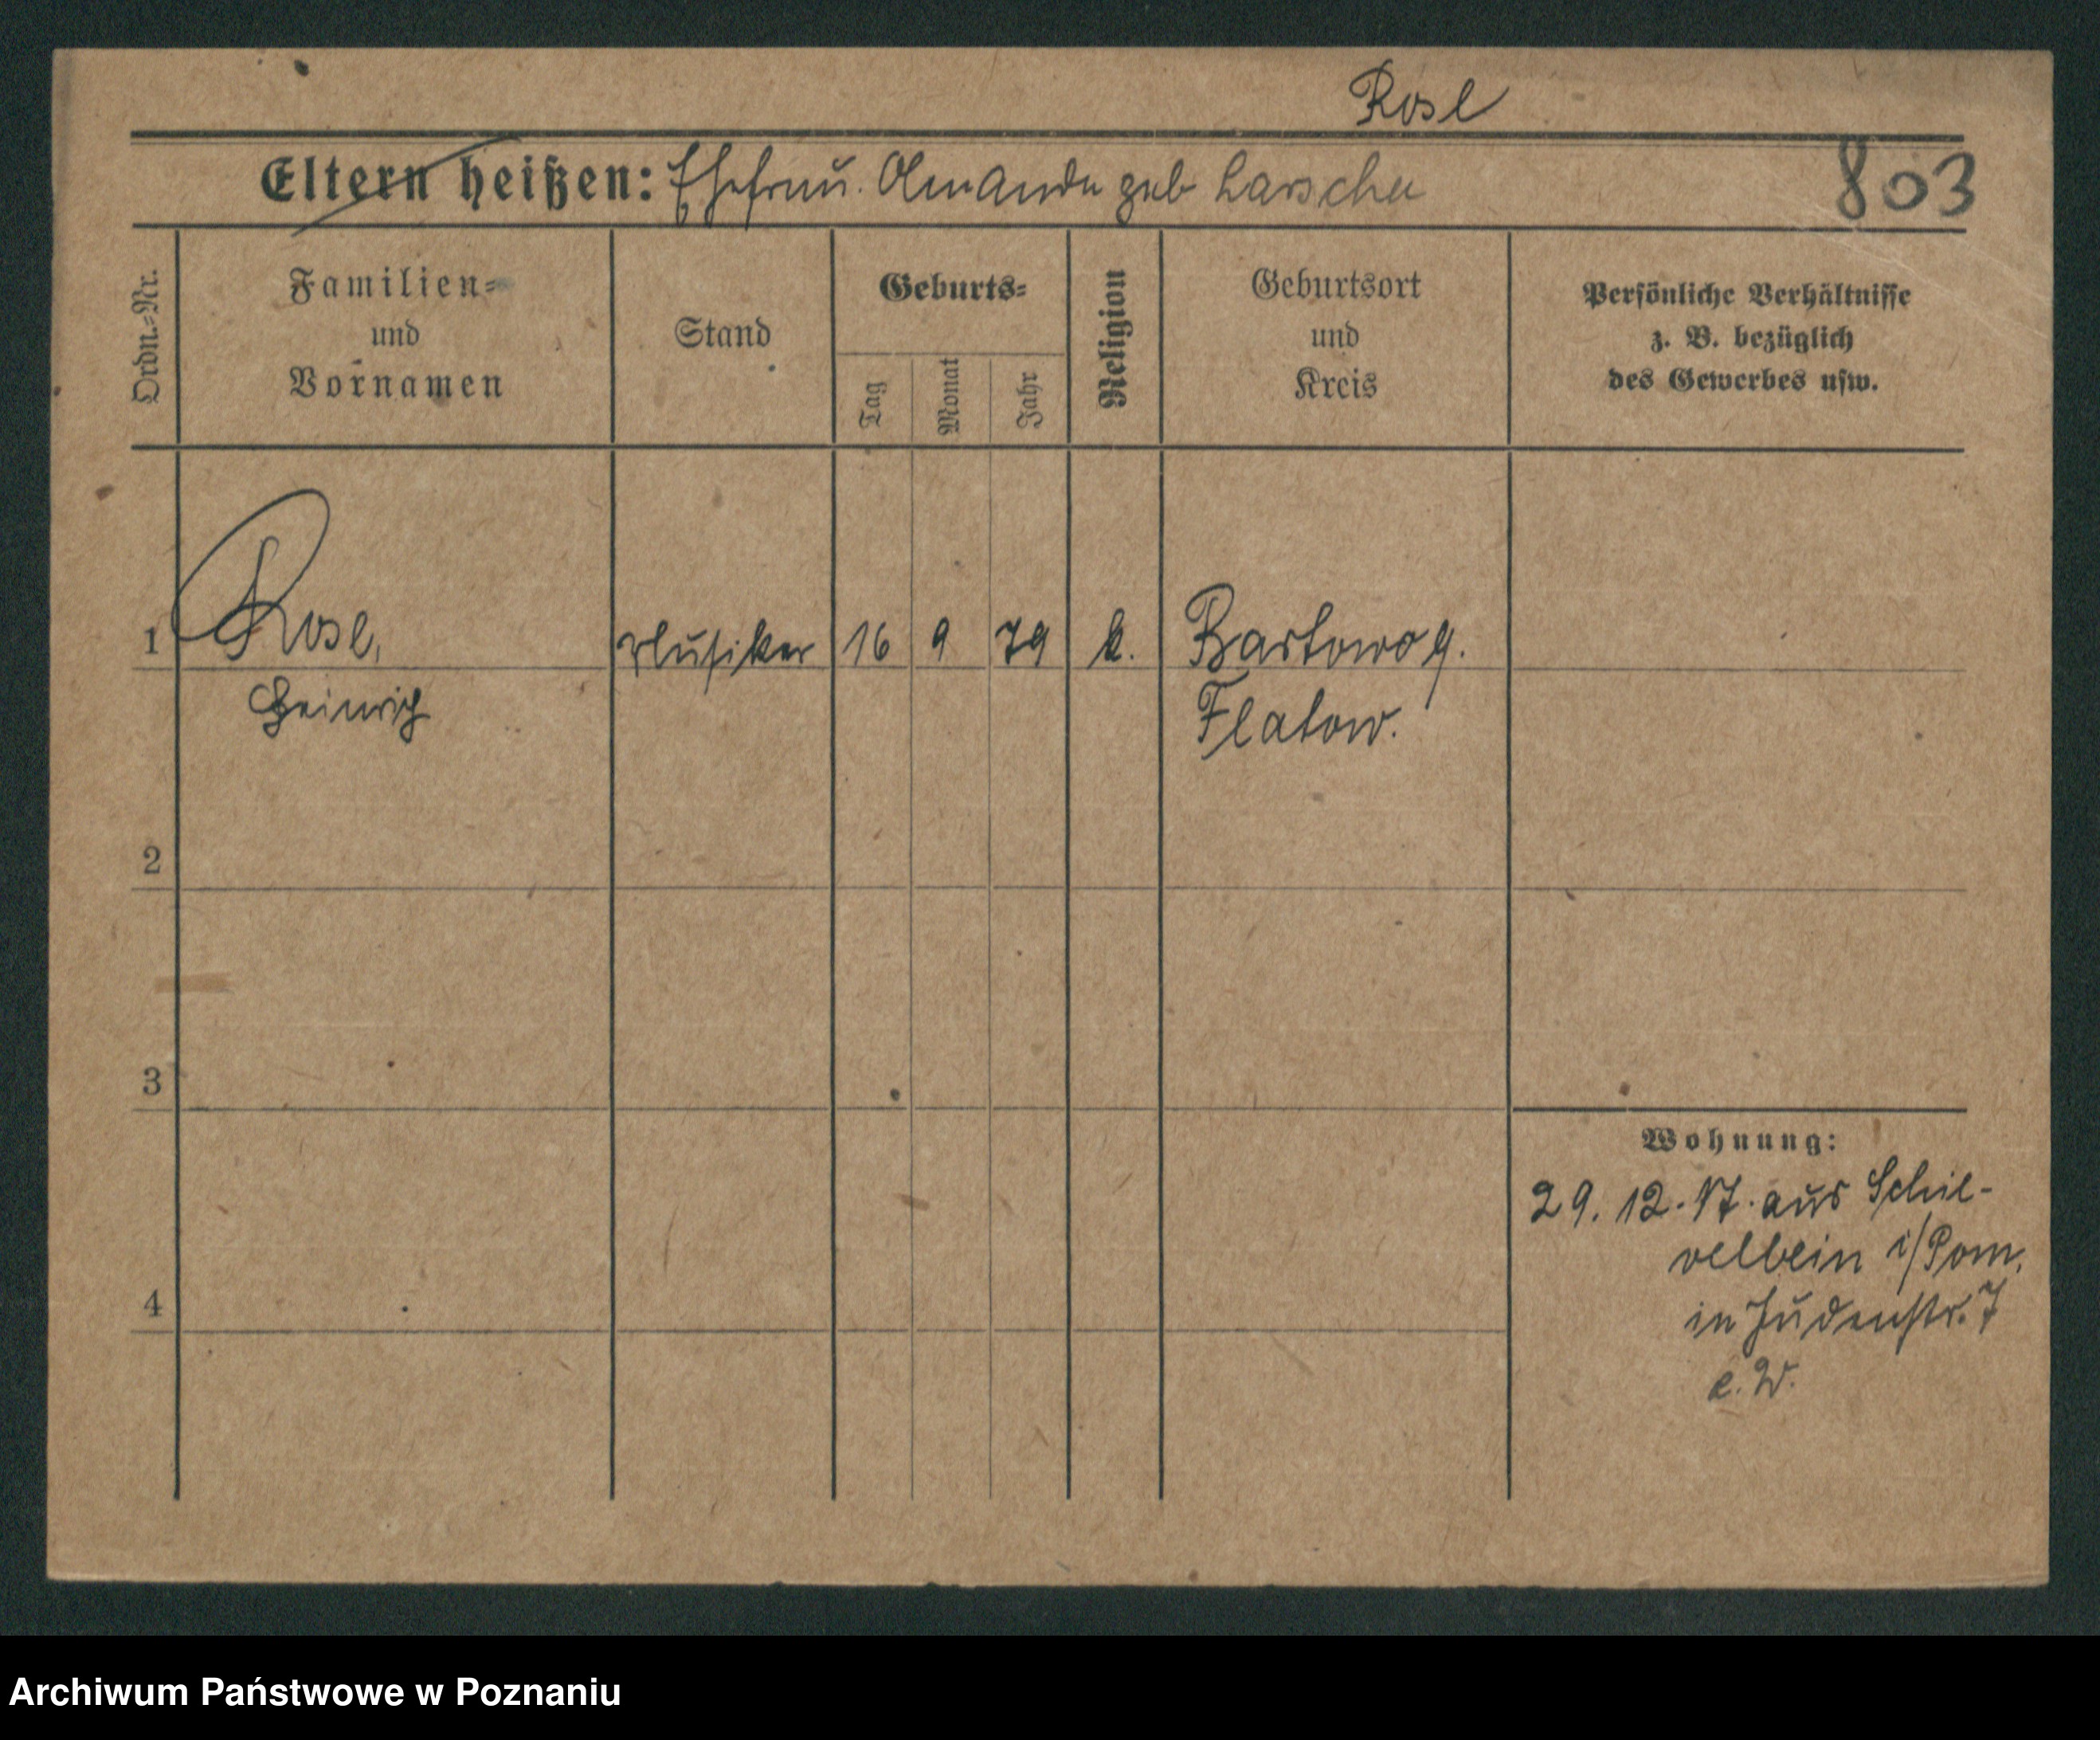 Rose
Eltern heißen: Ehefrau. Amanda geb
803
Ordn.=Nr.
Familien=
und
Vornamen
Stand
Geburts=
Tag
Monat
Jahr
Religion
Geburtsort
und
Kreis
Persönliche Verhältnisse
z. B. bezüglich
des Gewerbes usw.
1
Rose,
Musiker
16
9
79
k.
Bartowo
Heinrich
Flatow.
2
3
4
Wohnung:
29. 12. 17. aus Schil-
velbein i/Pom.
in Judenstr. 7
e. W.
Archiwum Państwowe w Poznaniu